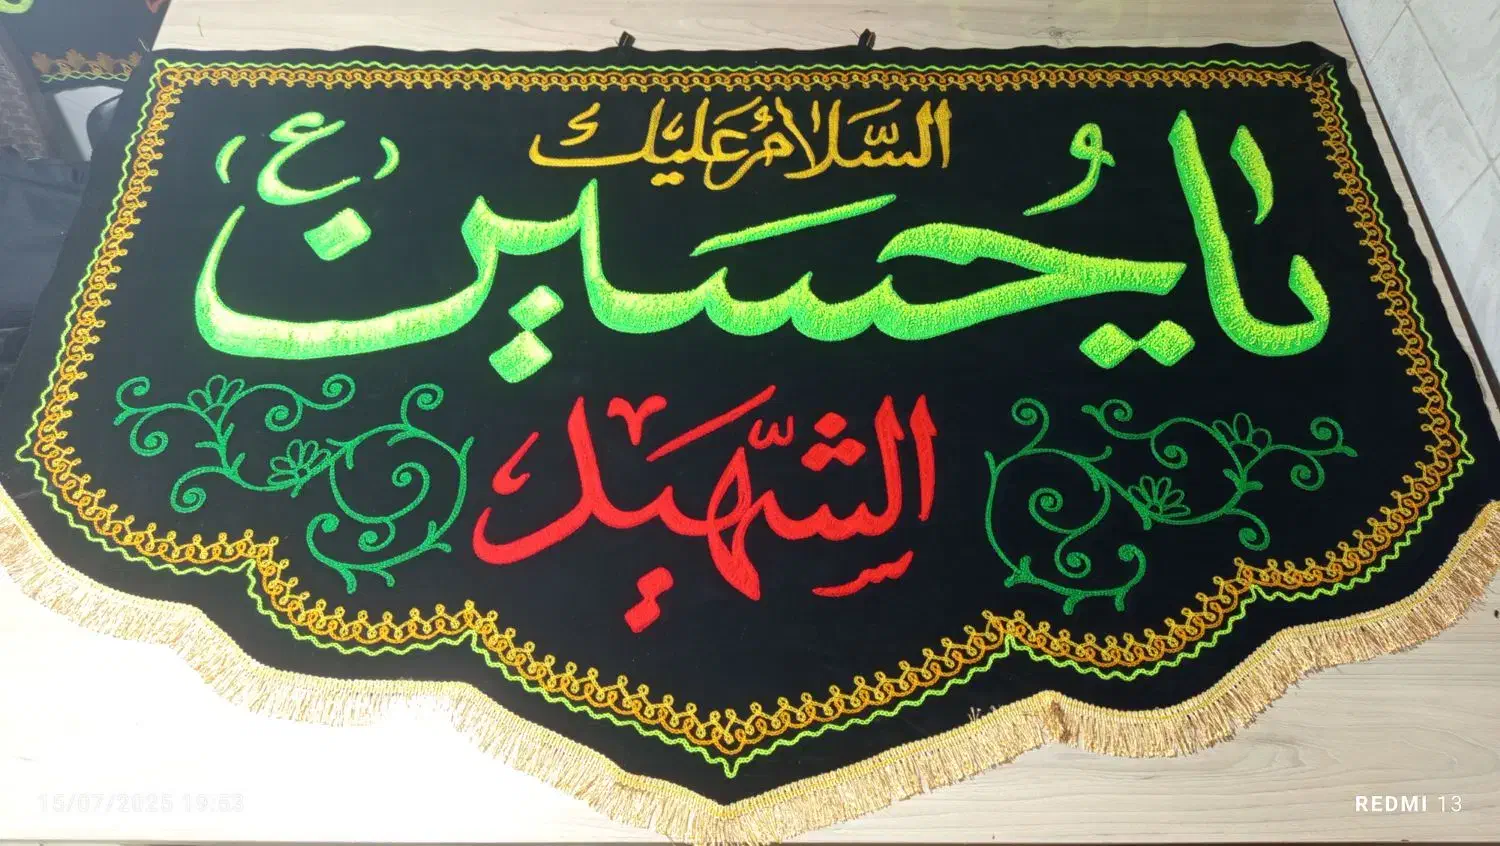 السَّلامُ عَلَيْكَ
يا حُسَين (ع)
الشَّهيد
15/07/2025 19:53
REDMI 13